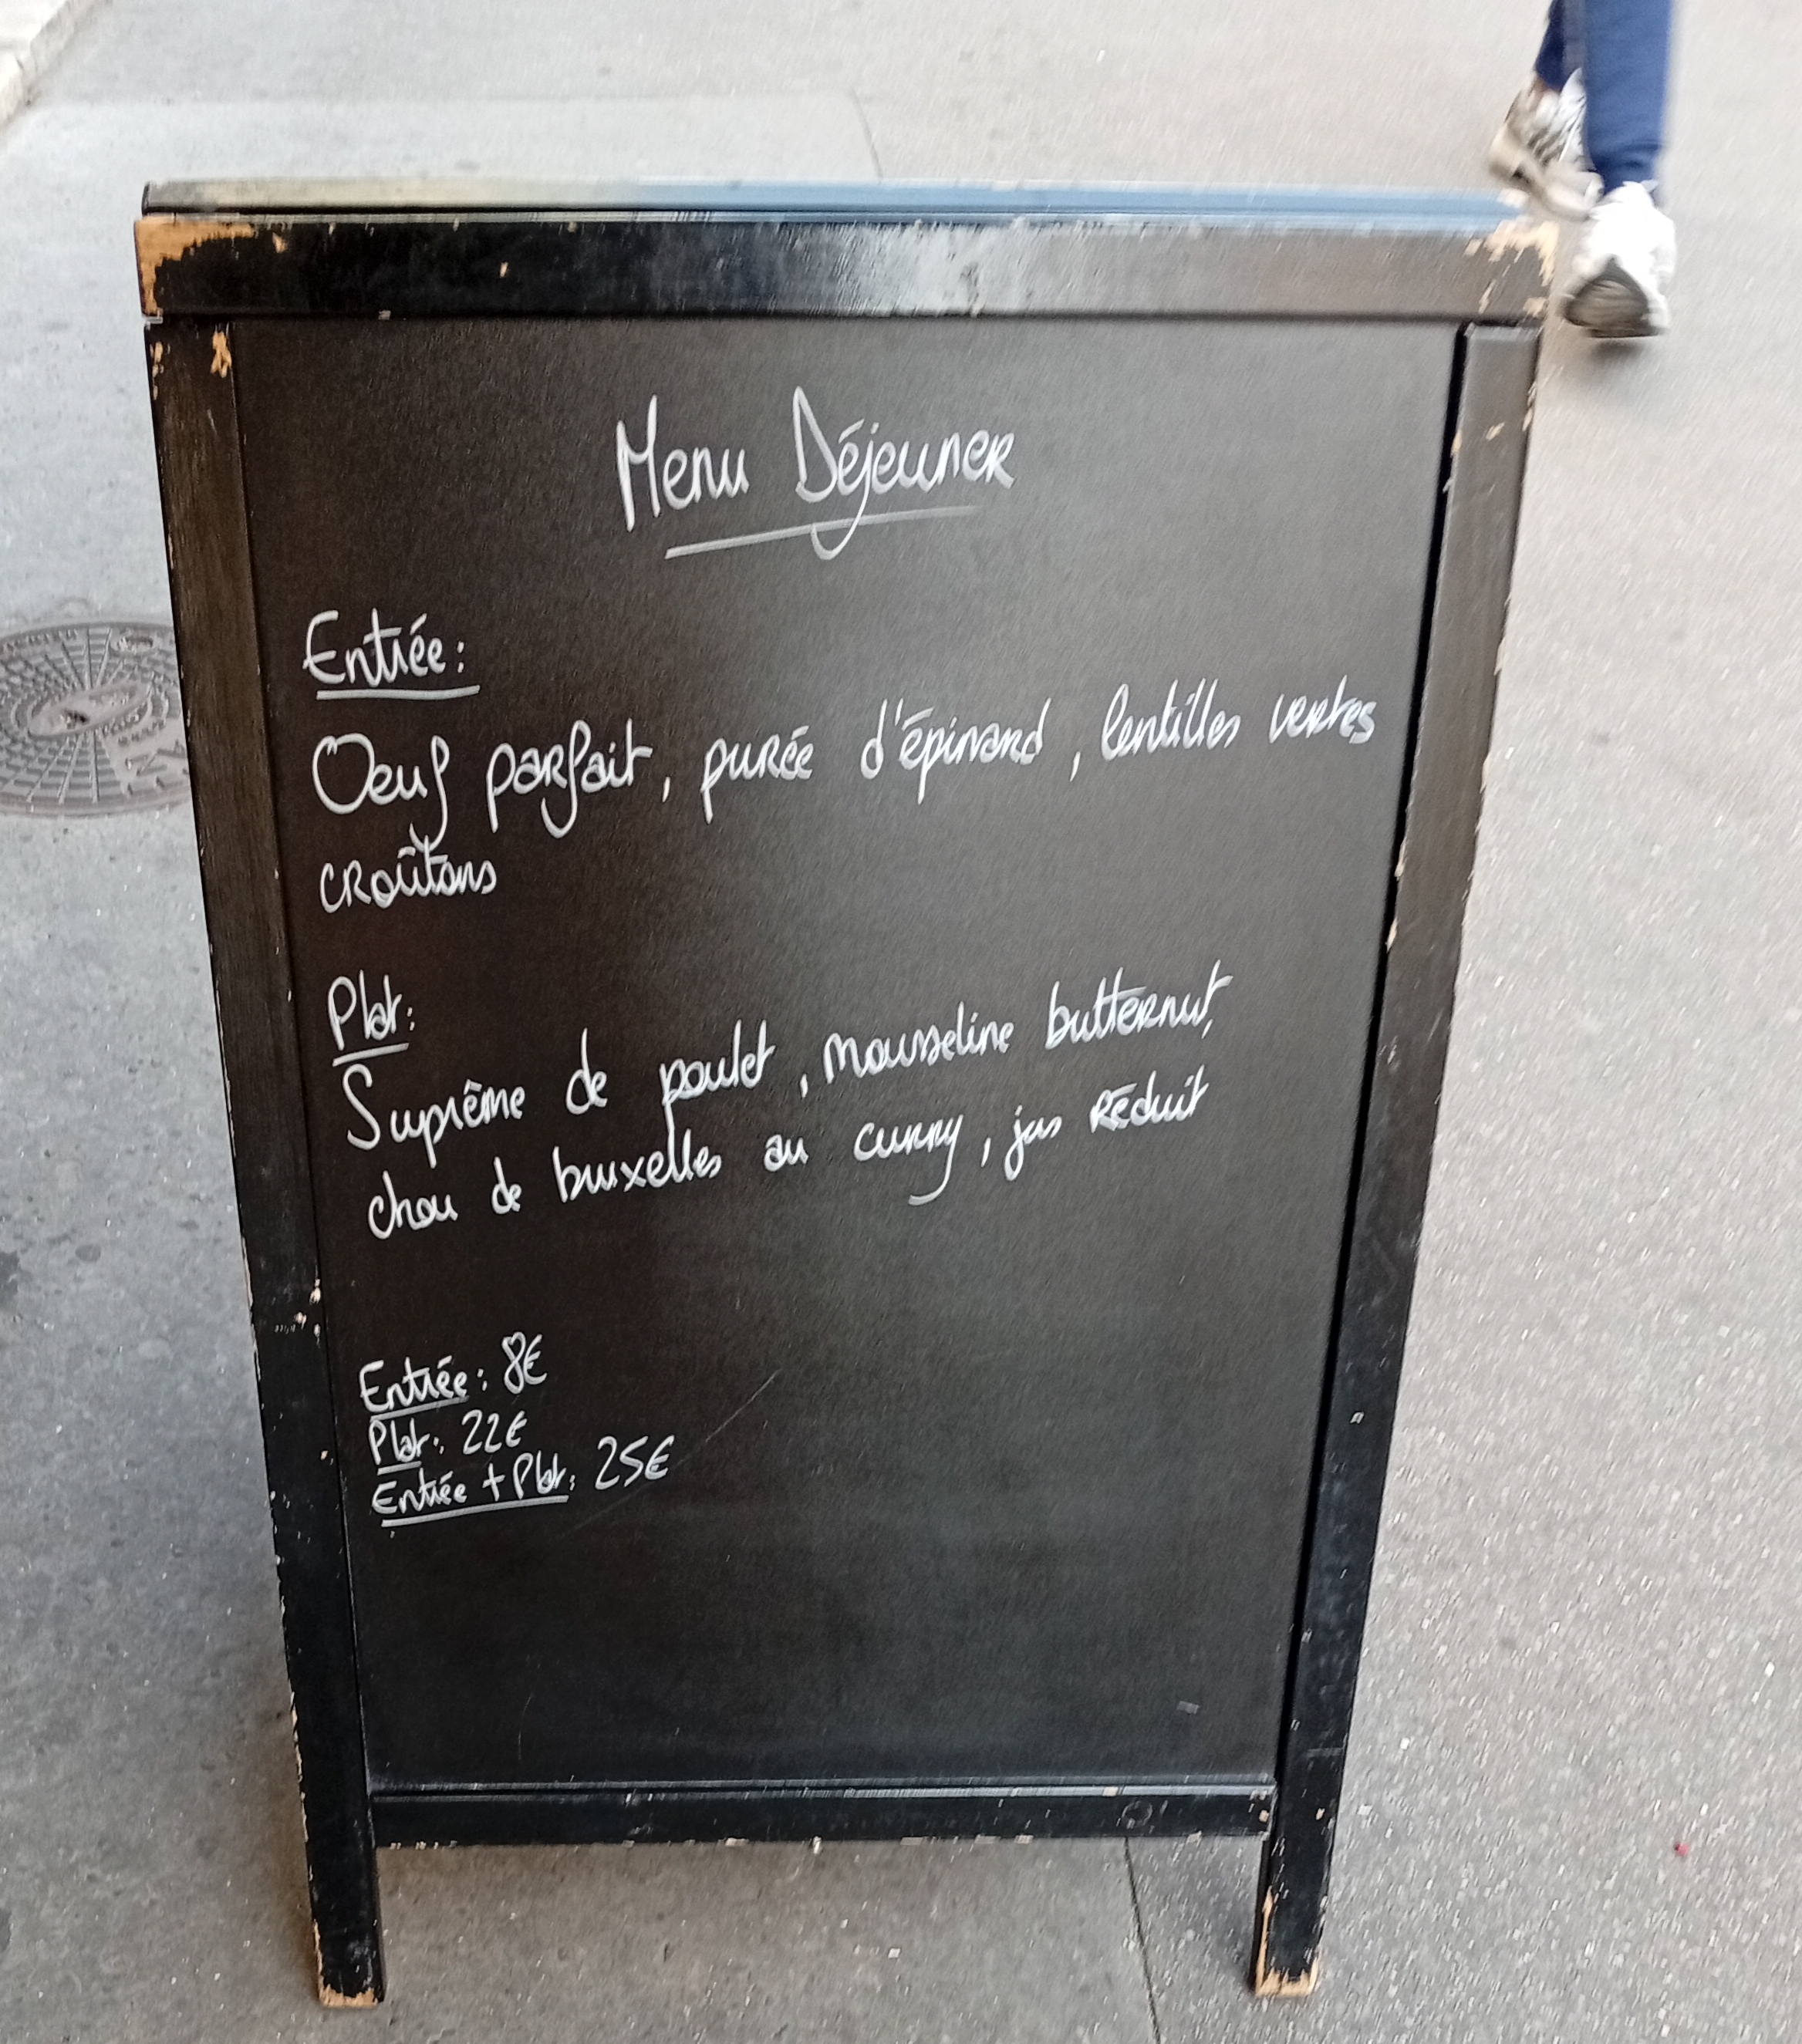 Menu Déjeuner
Entrée:
Oeuf parfait, purée d'épinard, lentilles vertes
croûtons
Plat:
Suprême de poulet, mousseline butternut,
chou de bruxelles au curry, jus réduit
Entrée: 8€
Plat: 22€
Entrée + Plat: 25€